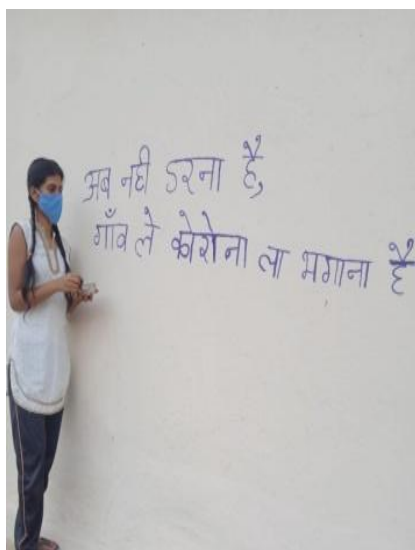 अब नही डरना है,
गाँव ले कोरोना ला भगाना है